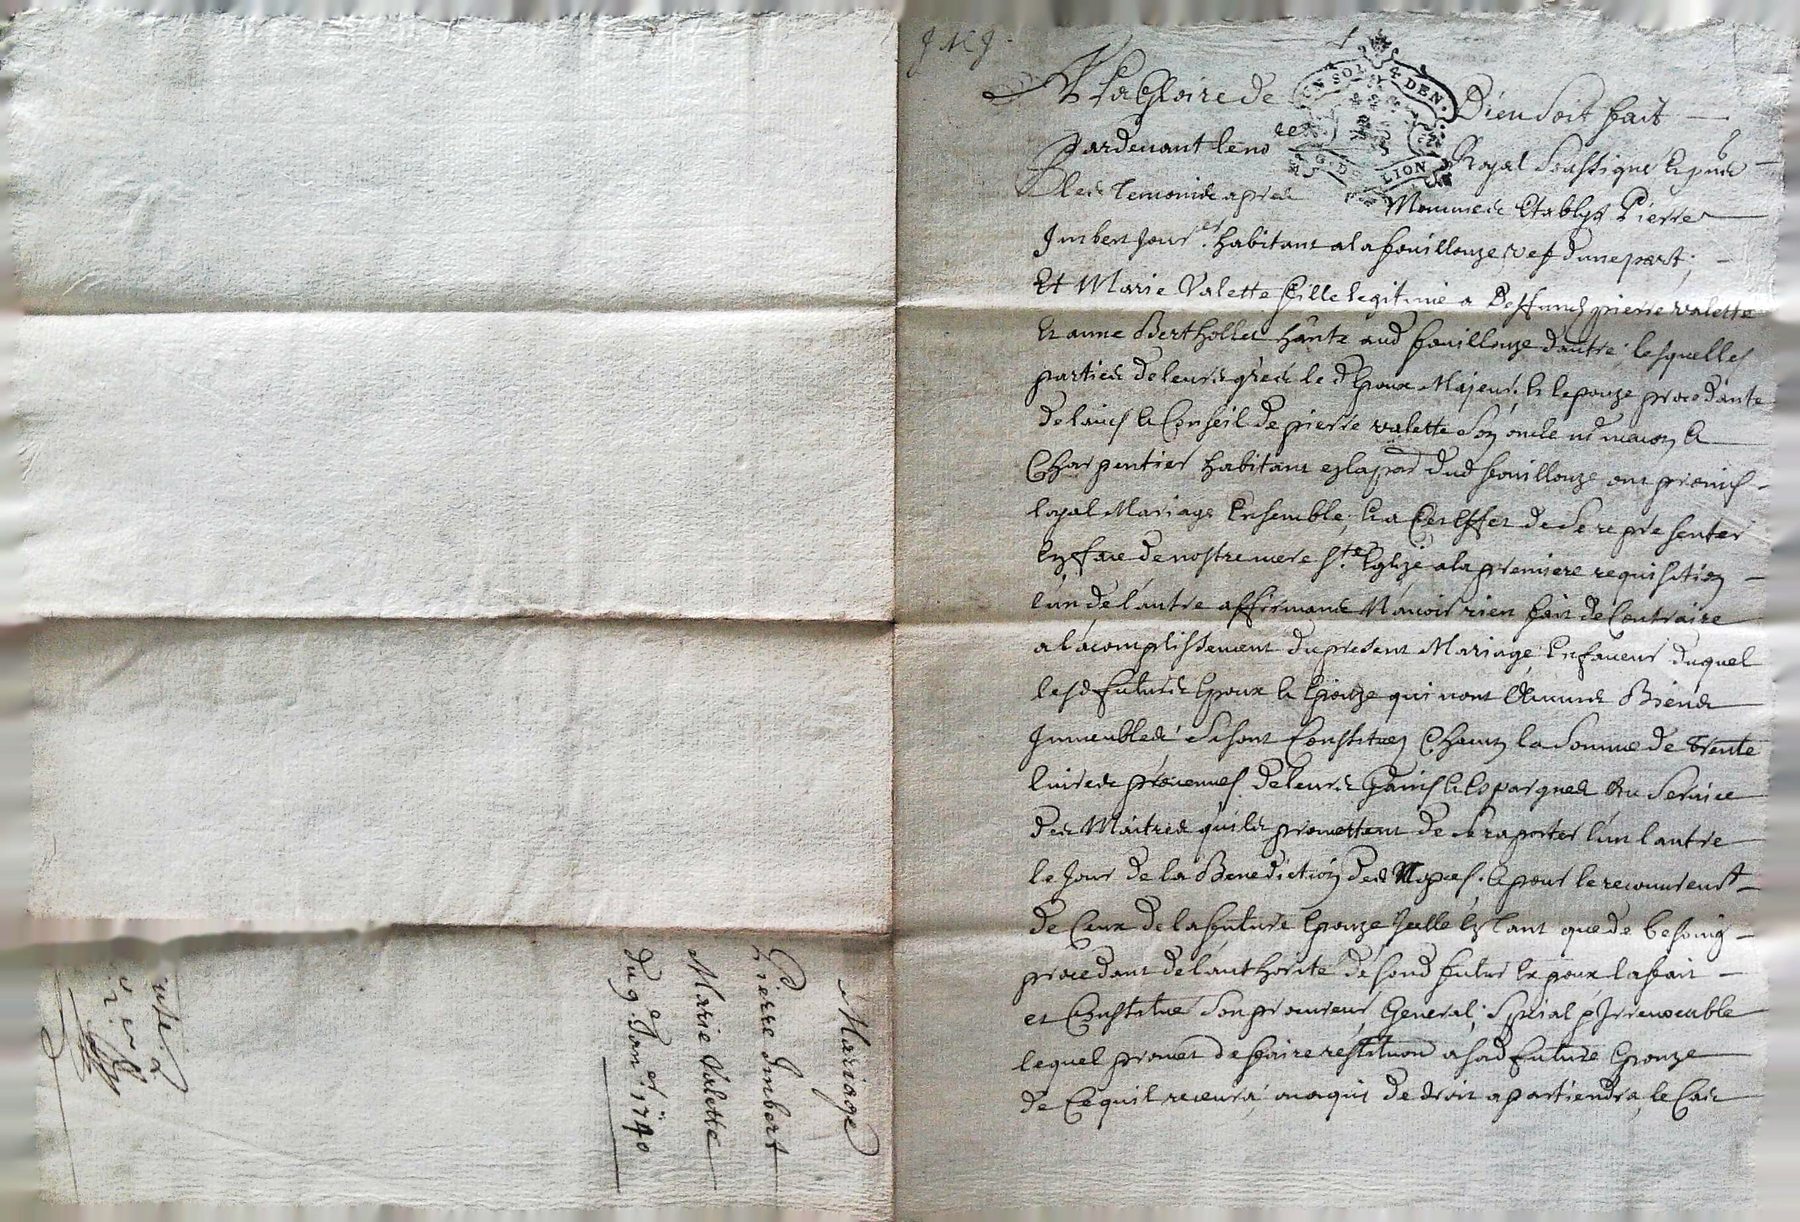 J M J
A La Gloire de Dieu Soit fait
Pardevant le no re Royal Soussigné Et
les Temoins apres Nommés Etablys Pierre
Imbert Jour.er habitant a la fouillouze, vef dune part;
Et Marie Valette fille legitime a Deffunds pierre valette
Et anne Berthollet hânte aud fouillouze dautre; lesquelles
parties de leurs grés le d Epoux Majeur, Et lepouze procedante
de lauis & Conseil de pierre valette Son oncle md macon &
Charpentier habitant en la par dud fouillouze ont promis
loyal Mariage Ensemble, Et a Cet Effet de Se representer
En face de nostre mere S.te Eglize a la premiere requisition
lun de lautre affirmants Nauoir rien fait de Contraire
a lacomplissement du present Mariage; En faueur duquel
lesd futurs Epoux & Epouze qui nont Aucuns Biens
Immeubles Se Sont Constitués Chacun la Somme de trente
liures prouenues de leurs Gains & Espargnes Au Seruice
des Maitres quils promettent de Se raporter lun lautre
le Jour de la Benediction des Nopces. & pour le recouurem.t
de Ceux de la future Epouze Jcelle En Tant que de besoing
procedant de lauthorité de Sond futur Epoux la fait
et Constitue Son procureur General, Spécial & Irreuocable
lequel promet de faire restitution a Sad future Epouze
de Ce quil receura, ou a qui de droit apartiendra, le Cas
Mariage
Pierre Imbert
Marie Valette
du 9.e Jan.er 1740